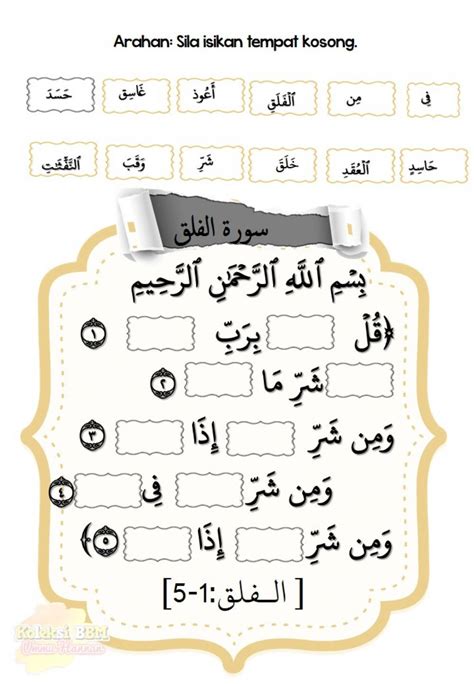 Arahan: Sila isikan tempat kosong.
فِى مِن ٱلْفَلَقِ أَعُوذُ غَاسِقٍ حَسَدَ
حَاسِدٍ ٱلْعُقَدِ خَلَقَ شَرِّ وَقَبَ ٱلنَّفَّٰثَٰتِ
سورة الفلق
بِسْمِ ٱللَّهِ ٱلرَّحْمَٰنِ ٱلرَّحِيمِ
﴿قُلْ بِرَبِّ ١
شَرِّ مَا ٢
وَمِن شَرِّ إِذَا ٣
وَمِن شَرِّ فِى ٤
وَمِن شَرِّ إِذَا ٥﴾
[ الـفلق:1-5]
Koleksi BBM
Ummu Hannan